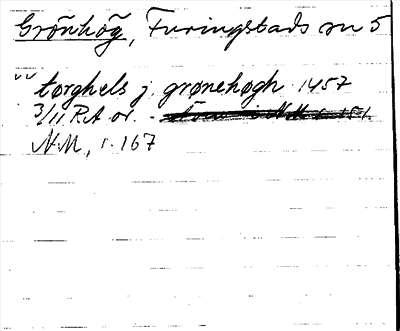 Grönhög, Furingstads sn 5
" torghels j grønehøgh 1457
3/11 RA or. -
NM, s. 167